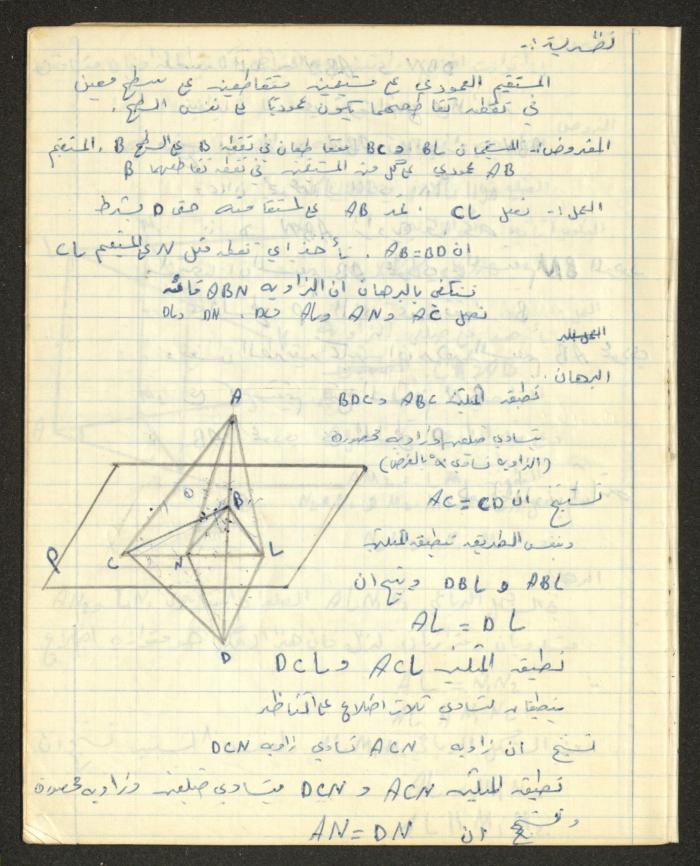 نظرية :-
المستقيم العمودي على مستقيمين متقاطعين على سطح معين
في نقطة تقاطعهما يكون عموديا على نفس السطح .
المفروض :- المستقيمان BL و BC متقاطعان في نقطة B على السطح P ، المستقيم
AB عمودي على كل من المستقيمين في نقطة تقاطعهما B
العمل :- نصل CL . نمد AB على استقامته حتى D بشرط
ان AB=BD . نأخذ اي نقطة مثل N على المستقيم CL
نكتفي بالبرهان ان الزاوية ABN قائمة
نصل AC و AN و AL و DC و DN و DL
البرهان
نطبق المثلثين ABC و BDC
تساوي ضلعين وزاوية محصورة
(الزاوية تساوي 90 بالفرض)
نستنتج ان AC = CD
وبنفس الطريقة نطبق المثلثين
ABL و DBL وينتج ان
AL = DL
نطبق المثلثين ACL و DCL
ينطبقان لتساوي ثلاث اضلاع على التناظر
نستنتج ان زاوية ACN تساوي زاوية DCN
نطبق المثلثين ACN و DCN بتساوي ضلعين وزاوية محصورة
ونستنتج ان AN = DN
A
B
P
C
N
L
D